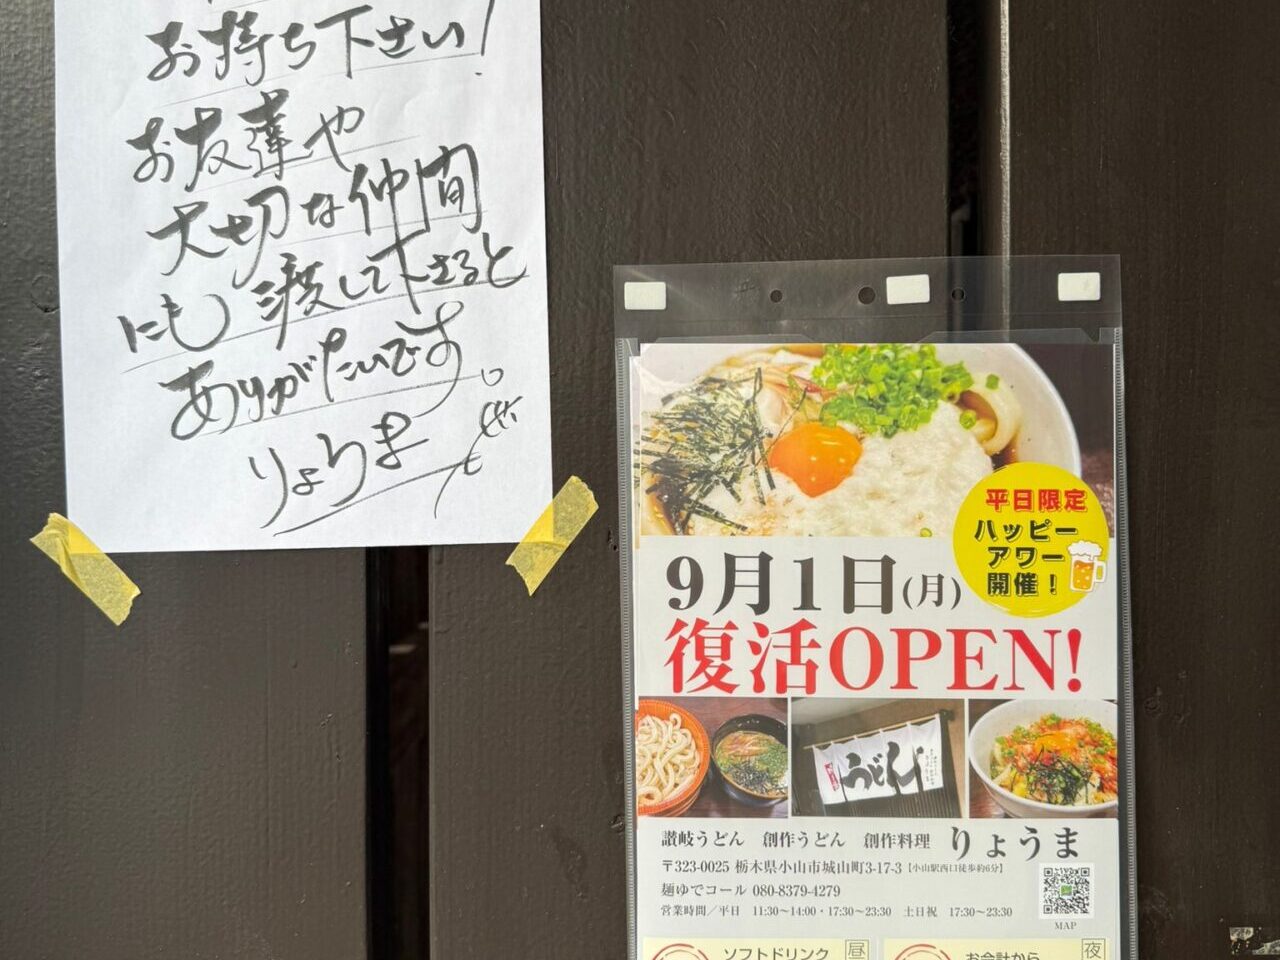 お持ち下さい!
お友達や
大切な仲間
にも渡して下さると
ありがたいです。
りょうま
平日限定
ハッピー
アワー
開催!
9月1日(月)
復活OPEN!
うどん
讃岐うどん 創作うどん 創作料理 りょうま
〒323-0025 栃木県小山市城山町3-17-3【小山駅西口徒歩約6分】
麺ゆでコール 080-8379-4279
営業時間/平日 11:30~14:00・17:30~23:30 土日祝 17:30~23:30
MAP
ソフトドリンク 昼
お会計から 夜